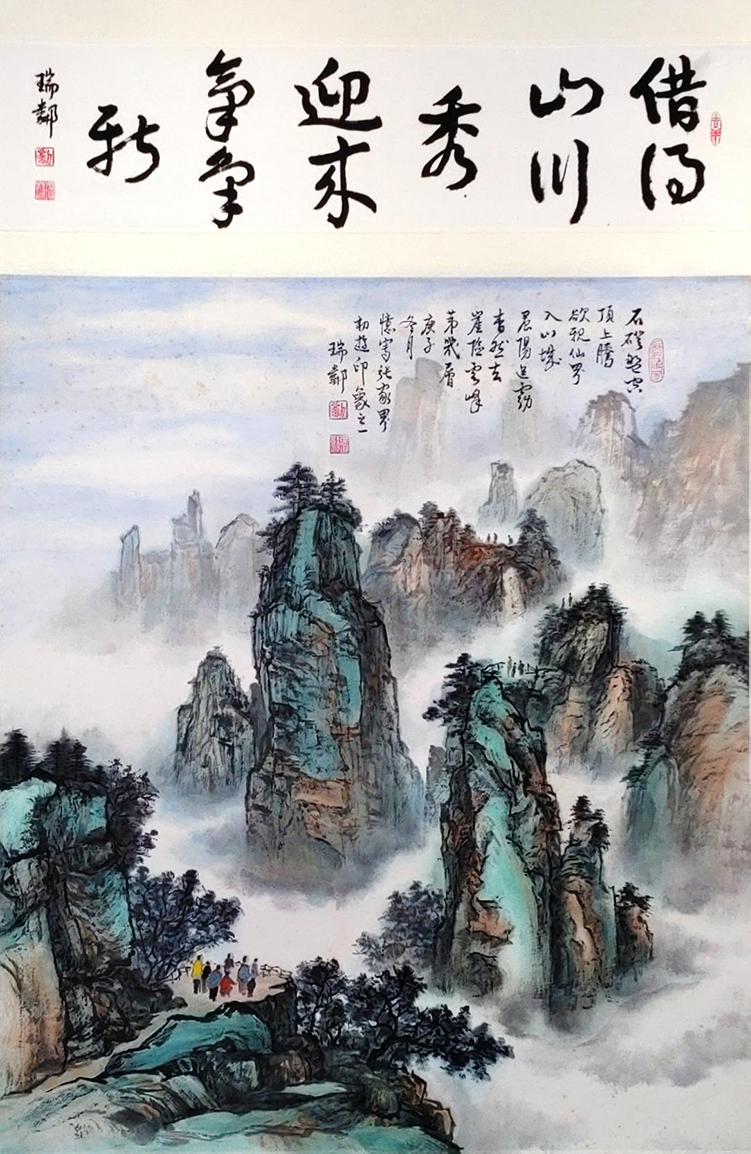 借得
山川
秀
迎來
氣象
新
瑞鄰
石磴盤空
頂上騰
欲仙界
入山
陽追霧
杳然去
崖隱雲峰
第幾層
庚子
冬月
憶寫張家界
初遊印象之一
瑞鄰